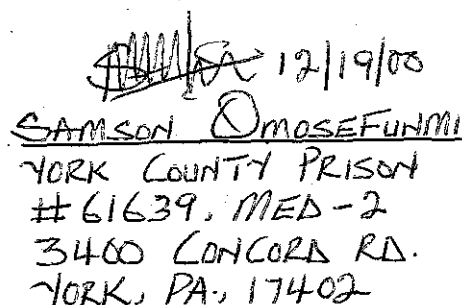 12/19/00
SAMSON OMOSEFUNMI
YORK COUNTY PRISON
# 61639, MED-2
3400 CONCORD RD.
YORK, PA., 17402